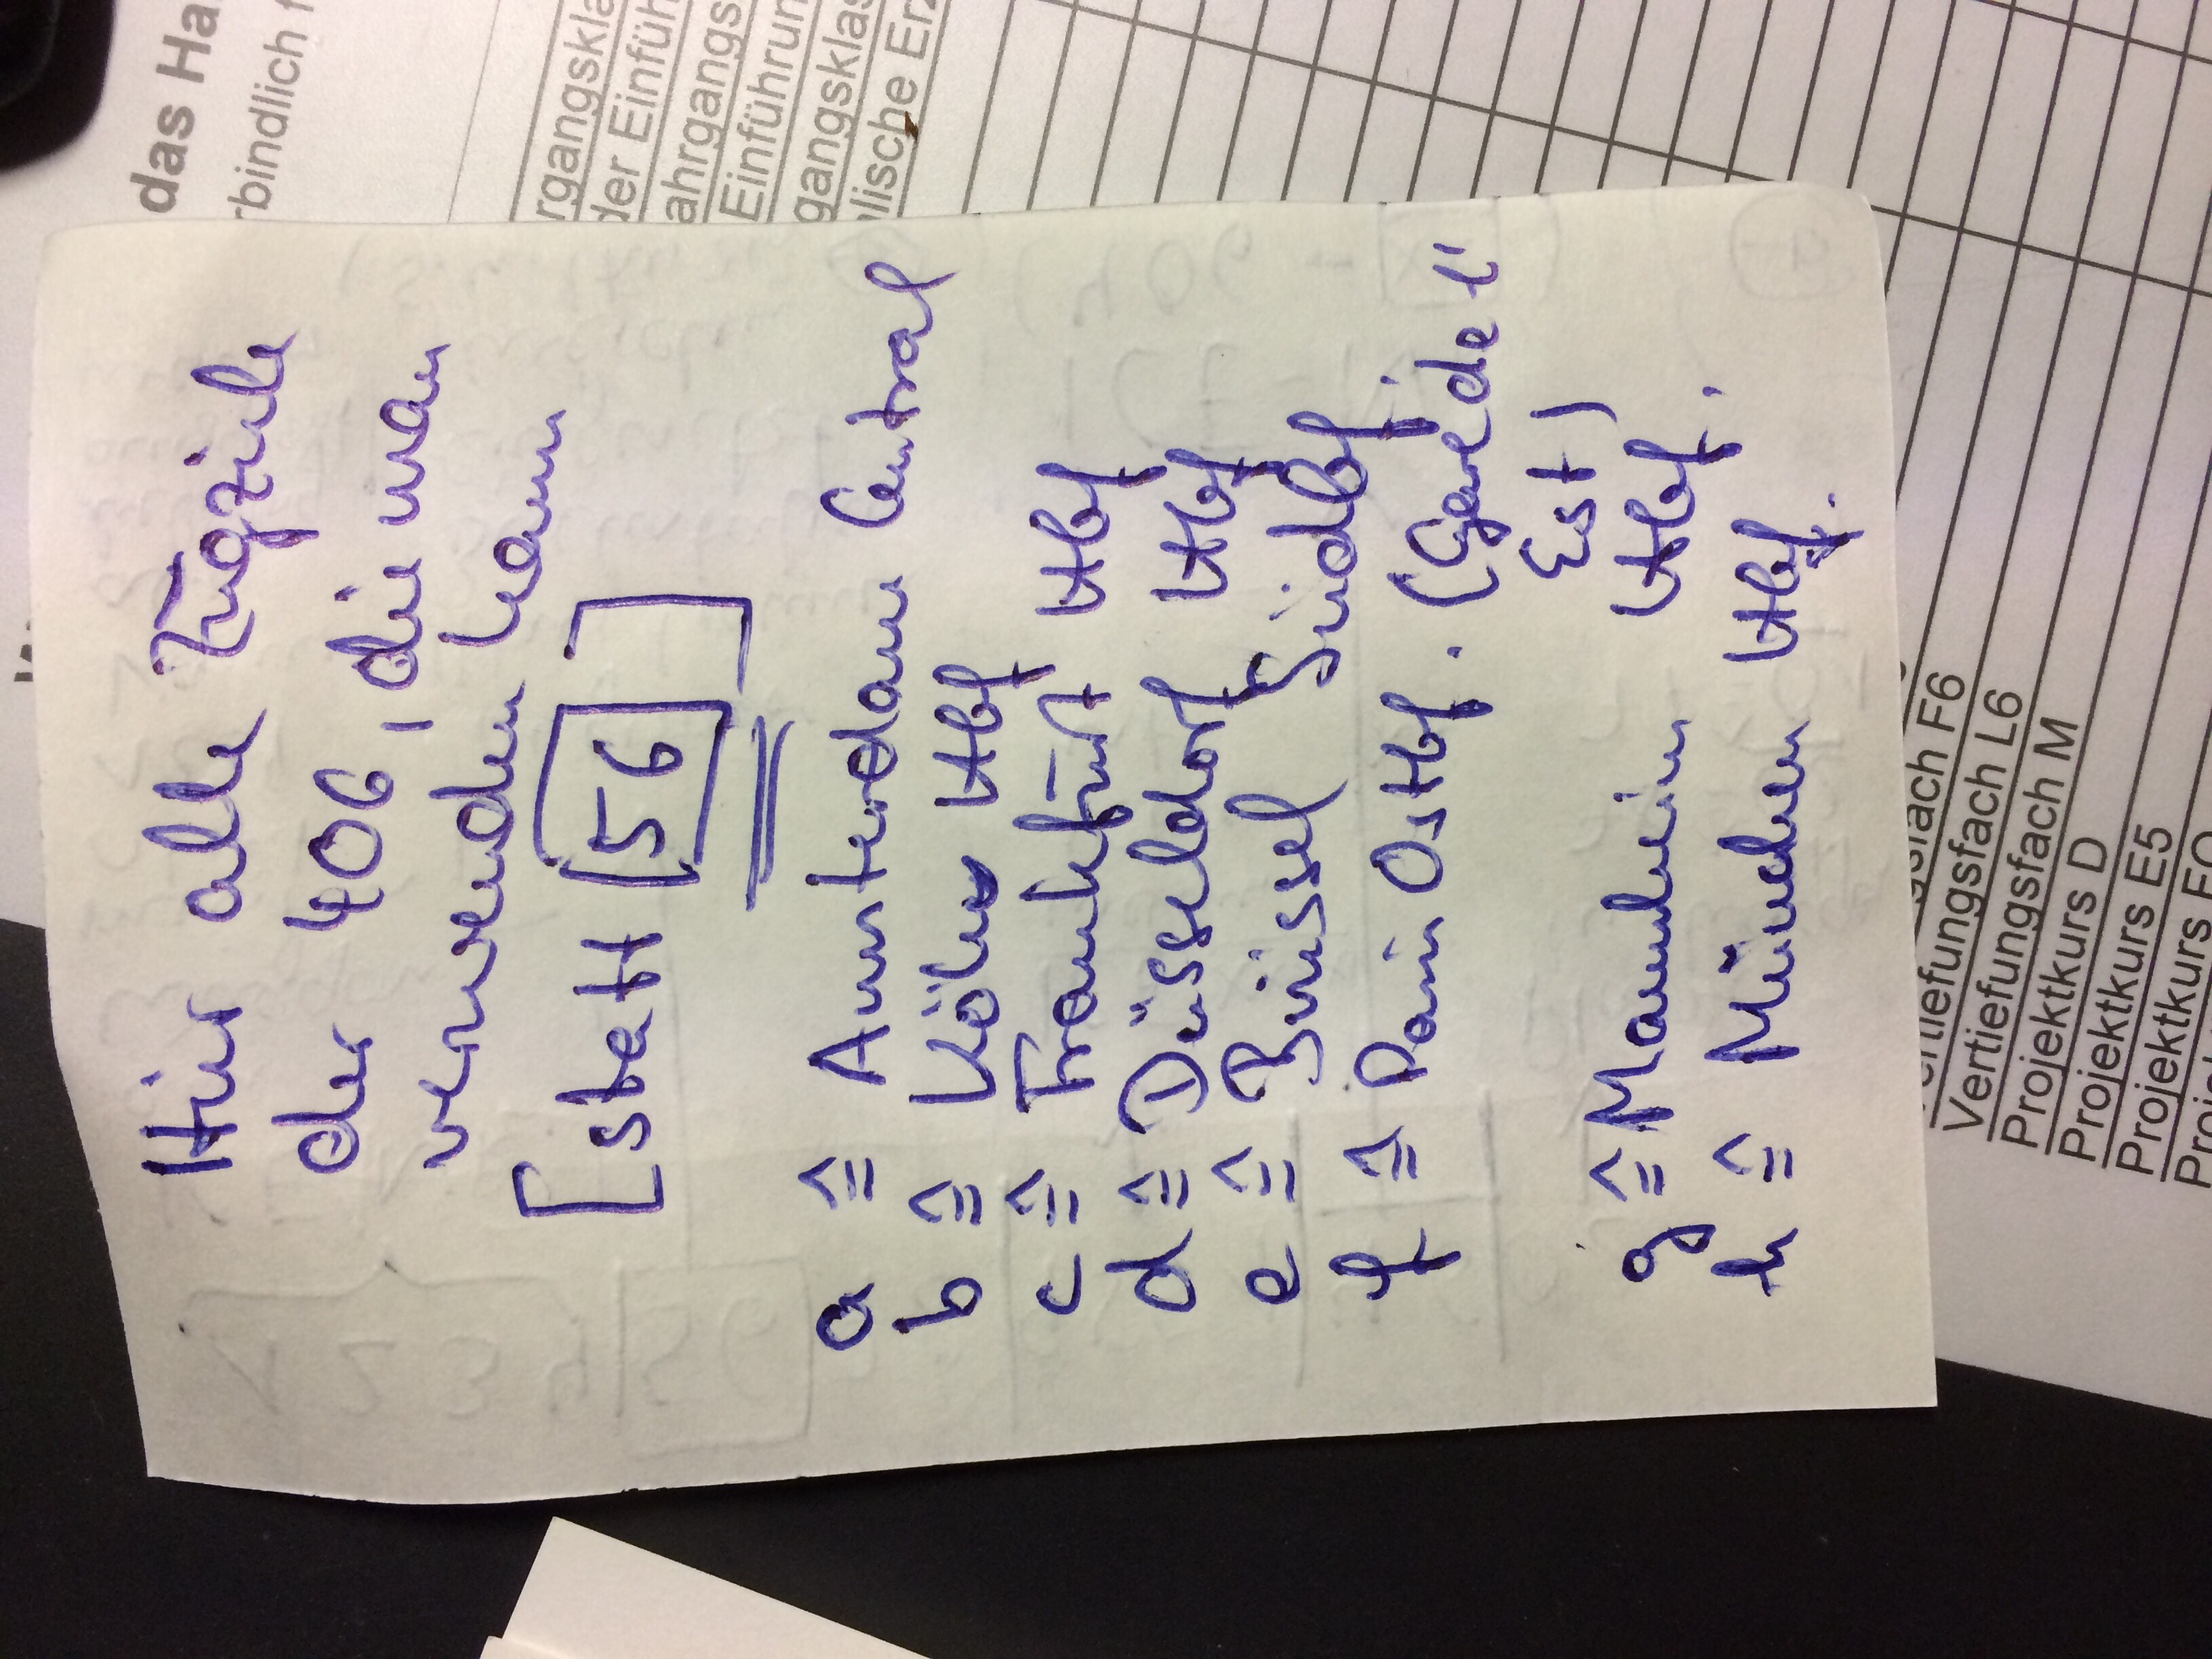 Hier alle Zugziele
der 406, die man
verwenden kann
[statt [56] ]
a ≙ Amsterdam Central
b ≙ Köln Hbf
c ≙ Frankfurt Hbf
d ≙ Düsseldorf Hbf
e ≙ Brüssel Südbf.
f ≙ Paris Ostbf. (Gare de l'
Est)
g ≙ Mannheim Hbf.
h ≙ München Hbf.
das Ha
rbindlich f
rgangskla
der Einfüh
ahrgangs
Einführun
gangsklas
lische Erz
fach F6
Vertiefungsfach L6
Vertiefungsfach M
Projektkurs D
Projektkurs E5
Projektkurs F0